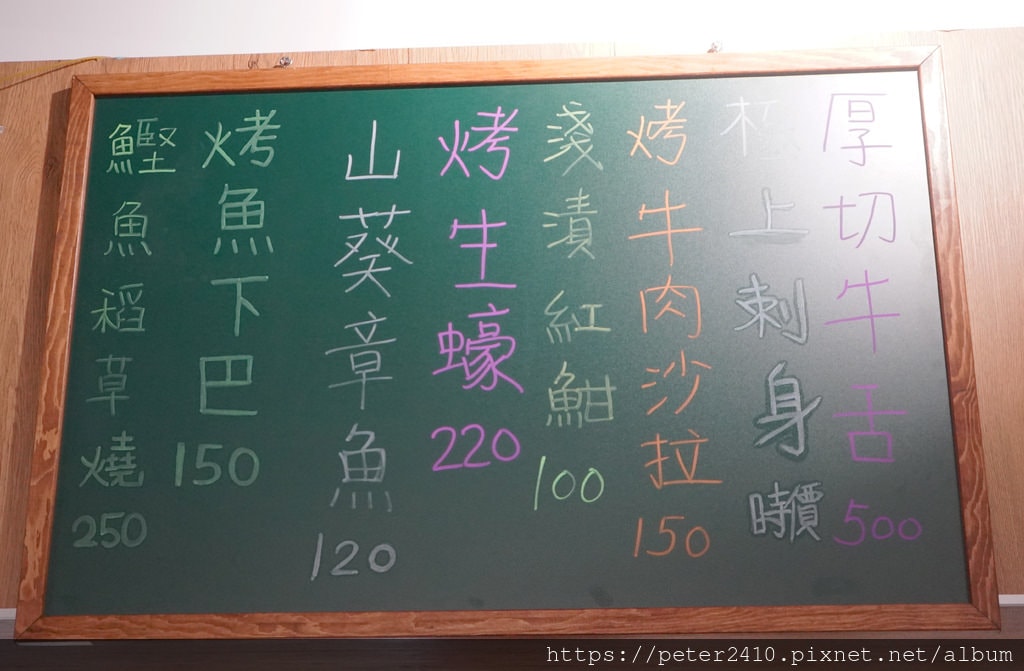 厚切牛舌 500
極上刺身 時價
烤牛肉沙拉 150
淺漬紅魽 100
烤生蠔 220
山葵章魚 120
烤魚下巴 150
鰹魚稻草燒 250
https://peter2410.pixnet.net/album